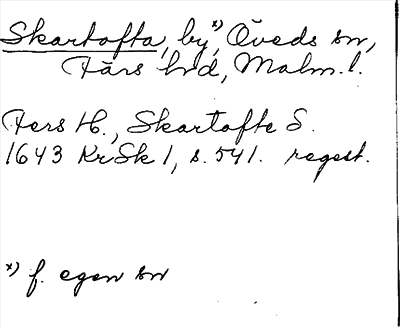 Skartofta, by,*) Öveds sn,
Färs hd, Malm. l.
Fers H., Skartofte S.
1643 KrSk 1, s. 541. regest.
*) f. egen sn